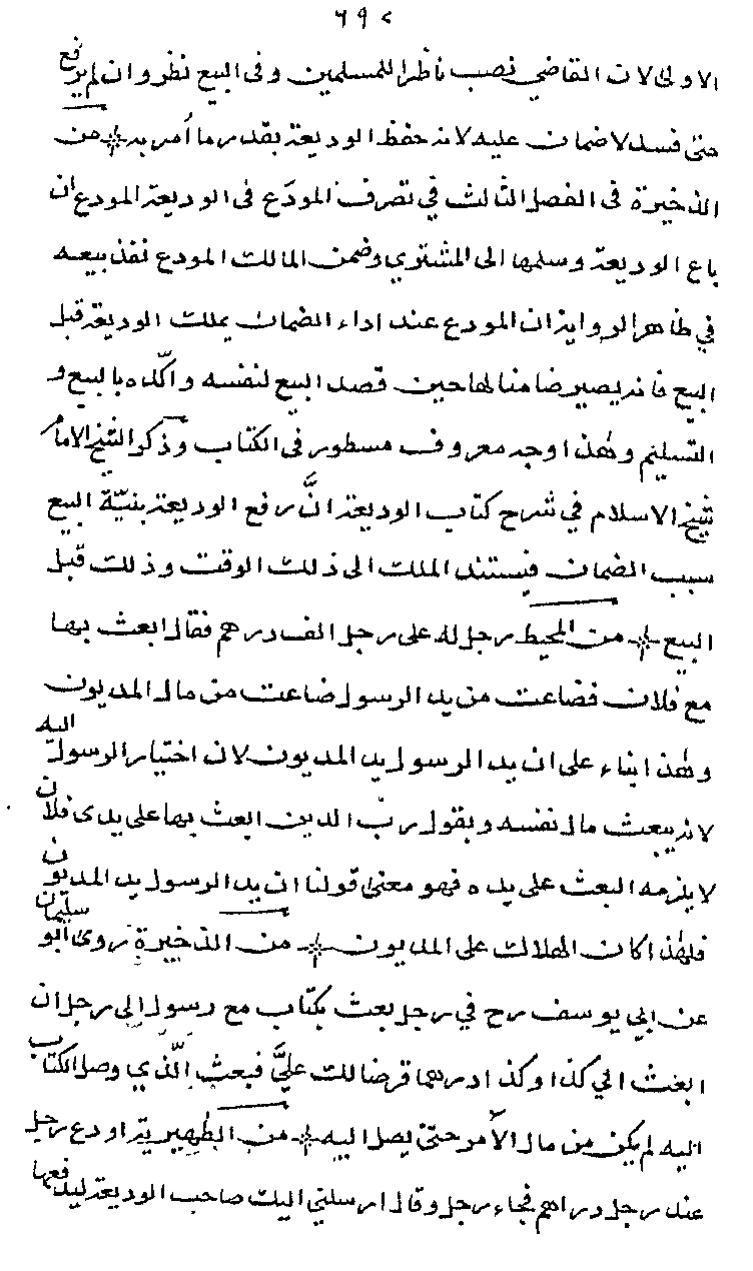 ٦٩٢
الاولى لان القاضي نصب ناظرا للمسلمين وفى البيع نظر وان لم يرفع
حتى فسد لا ضمان عليه لانه حفظ الوديعة بقدر ما أمر به من
الذخيرة فى الفصل الثالث في تصرف المودَع فى الوديعة المودع ان
باع الوديعة وسلمها الى المشتري وضمن المالك المودع نفذ بيعه
في ظاهر الرواية لان المودع عند اداء الضمان يملك الوديعة قبل
البيع فانه يصير ضامنا لها حين قصد البيع لنفسه واكّده بالبيع و
التسليم وهذا وجه معروف مسطور فى الكتاب وذكر الشيخ الامام
شيخ الاسلام في شرح كتاب الوديعة انَّ رفع الوديعة بنيّة البيع
سبب الضمان فيستند الملك الى ذلك الوقت وذلك قبل
البيع من المحيط رجل له على رجل الف درهم فقال ابعث بها
مع فلان فضاعت من يد الرسول ضاعت من مال المديون
وهذا بناء على ان يد الرسول يد المديون لان اختيار الرسول اليه
لانه يبعث مال نفسه وبقول ربّ الدين ابعث بها على يدى فلان
لا يلزمه البعث على يده فهو معنى قولنا ان يد الرسول يد المديون
فلهذا كان الهلاك على المديون من الذخيرة روى ابو سليمان
عن ابي يوسف رح في رجل بعث بكتاب مع رسول إلى رجل ان
ابعث الي كذا وكذا درهما قرضا لك عليَّ فبعث الّذي وصل الكتاب
اليه لم يكن من مال الآمر حتى يصل اليه من الظهيرية اودع رجل
عند رجل دراهم فجاء رجل وقال ارسلني اليك صاحب الوديعة ليدفعها